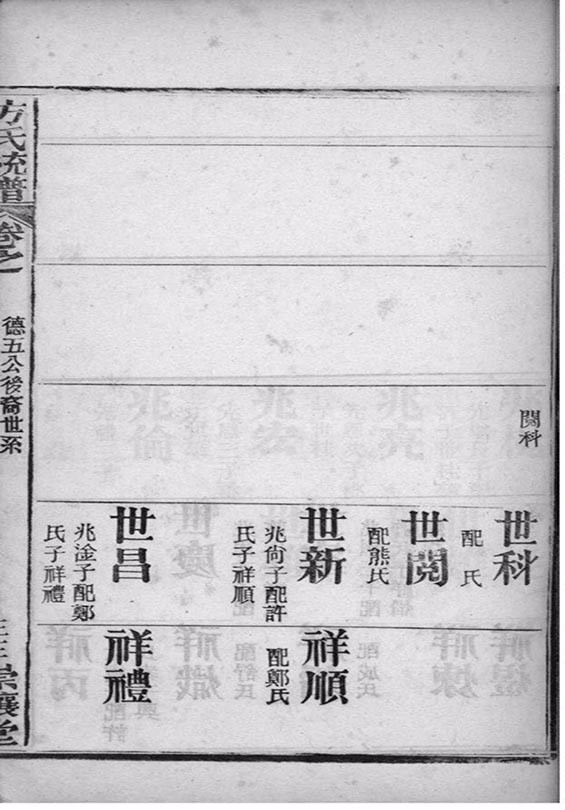 閱科
世科
配 氏
世閱
配熊氏
世新
兆尙子配許
氏子祥順
世昌
兆淦子配鄭
氏子祥禮
祥順
配鄭氏
祥禮
方氏統譜
卷之一
德五公後裔世系
崇讓堂